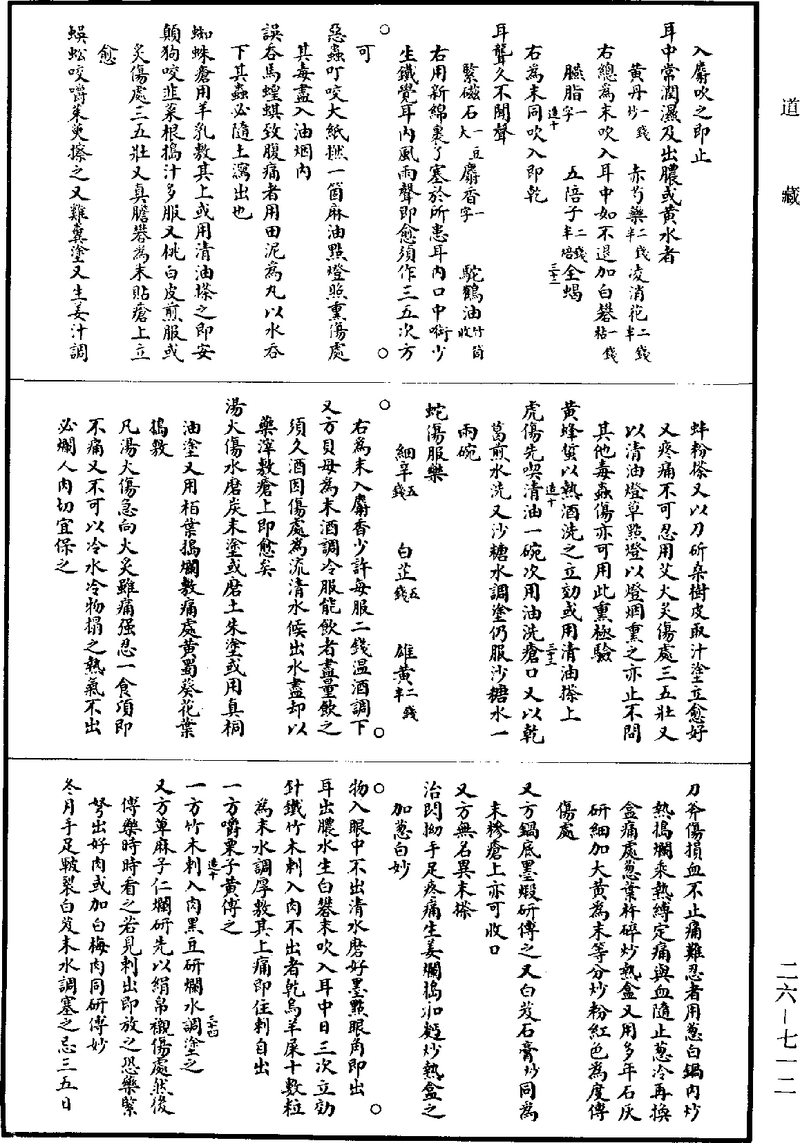 道藏
入麝吹之即止
耳中常潤濕及出膿或黃水者
黃丹炒一錢　赤芍藥半二錢　凌消花半二錢
右總為末吹入耳中如不退加白礬枯一錢
臙脂一字　五陪子半二錢焙　全蝎
右為末同吹入即乾
耳聾久不聞聲
緊磁石一豆大　麝香一字　駝鶴油竹筒收
右用新綿裹了塞於所患耳內口中啣少
生鐵覺耳內風雨聲即愈須作三五次方
可
惡蟲叮咬大紙撚一箇麻油點燈照熏傷處
其毒盡入油烟內
誤吞馬蝗蜞致腹痛者用田泥為丸以水吞
下其蟲必隨土瀉出也
蜘蛛瘡用羊乳敷其上或用清油搽之即安
顛狗咬韭菜根搗汁多服又桃白皮煎服或
灸傷處三五壯又真膽礬為末貼瘡上立
愈
蜈蚣咬嚼茱萸擦之又雞糞塗又生姜汁調
蚌粉搽又以刀斫桑樹皮取汁塗立愈好
又疼痛不可忍用艾火灸傷處三五壯又
以清油燈草點燈以燈烟熏之亦止不問
其他毒蟲傷亦可用此熏極驗
黃蜂螫以熱酒洗之立効或用清油搽上
虎傷先喫清油一碗次用油洗瘡口又以乾
葛煎水洗又沙糖水調塗仍服沙糖水一
兩碗
蛇傷服藥
細辛五錢　白芷五錢　雄黃半二錢
右為末入麝香少許每服二錢溫酒調下
又方貝母為末酒調冷服能飲者盡量飲之
須久酒因傷處為流清水候出水盡却以
藥滓敷瘡上即愈矣
湯火傷水磨炭末塗或磨土朱塗或用真桐
油塗又用栢葉搗爛敷痛處黃蜀葵花葉
搗敷
凡湯火傷急向火炙雖痛强忍一食頃即
不痛又不可以冷水冷物搨之熱氣不出
必爛人肉切宜保之
刀斧傷損血不止痛難忍者用葱白鍋內炒
熱搗爛乘熱縛定痛與血隨止葱冷再換
盒痛處葱葉杵碎炒熱盒又用多年石灰
研細加大黃為末等分炒粉紅色為度傅
傷處
又方鍋底墨煅研傅之又白芨石膏炒同為
末糝瘡上亦可收口
又方無名異末搽
治閃抝手足疼痛生姜爛搗和麪炒熱盒之
加葱白妙
物入眼中不出清水磨好墨點眼角即出
耳出膿水生白礬末吹入耳中日三次立効
針鐵竹木刺入肉不出者乾烏羊屎十數粒
為末水調厚敷其上痛即住刺自出
一方嚼栗子黃傅之
一方竹木刺入肉黑豆研爛水調塗之
又方萆麻子仁爛研先以絹帛襯傷處然後
傅藥時時看之若見刺出即放之恐藥緊
弩出好肉或加白梅肉同研傅妙
冬月手足皸裂白芨末水調塞之忌三五日
二六—七一二